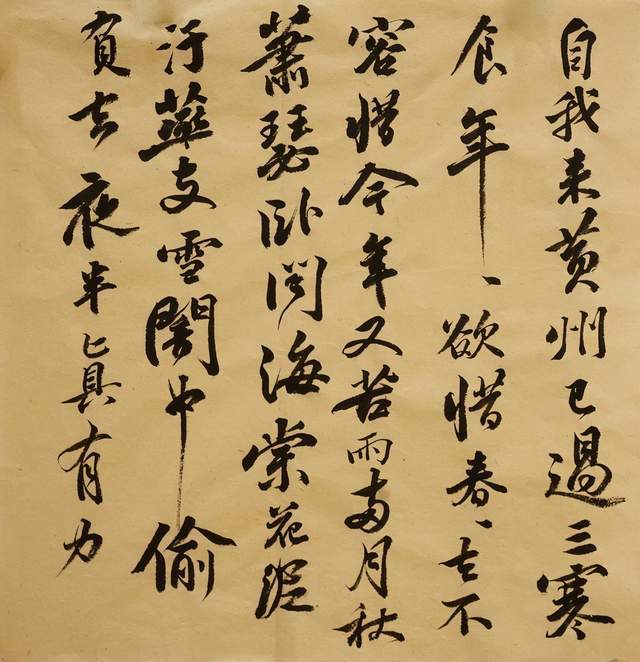 自我来黄州已過三寒
食年、欲惜春、去不
容惜今年又苦雨兩月秋
蕭瑟卧聞海棠花泥
汙燕支雪闇中偷
負去夜半真有力